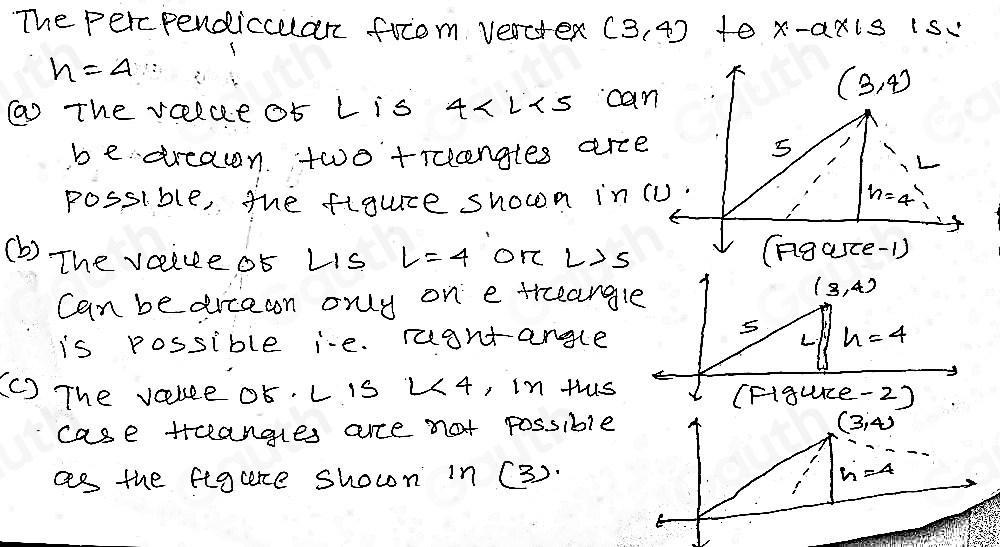 The perpendicular from vertex (3,4) to x-axis is:
h = 4
(a) The value of L is 4<L<5 can
be drawn two triangles are
possible, the figure shown in (1).
(b) The value of L is L=4 or L>5
Can be drawn only on e triangle
is possible i.e. right-angle
(c) The value of . L is L<4, in this
case triangles are not possible
as the figure shown in (3).
(3,4)
5
L
h=4
(Figure-1)
(3,4)
5
L
h=4
(Figure-2)
(3,4)
h=4